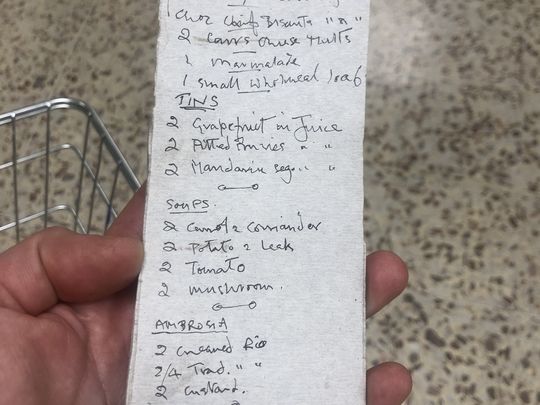 Choc Bisants " " "
2
1 marmalade
1 small wholmeal loaf
TINS
2 Grapefruit in Juice
2 Pitted Prunes " "
2 Mandarin segs. "
SOUPS.
2 Carrot & Coriander
2 Potato & Leak
2 Tomato
2 mushroom.
AMBROSIA
2 creamed Rice
2/4 Trad. " "
2 custard.